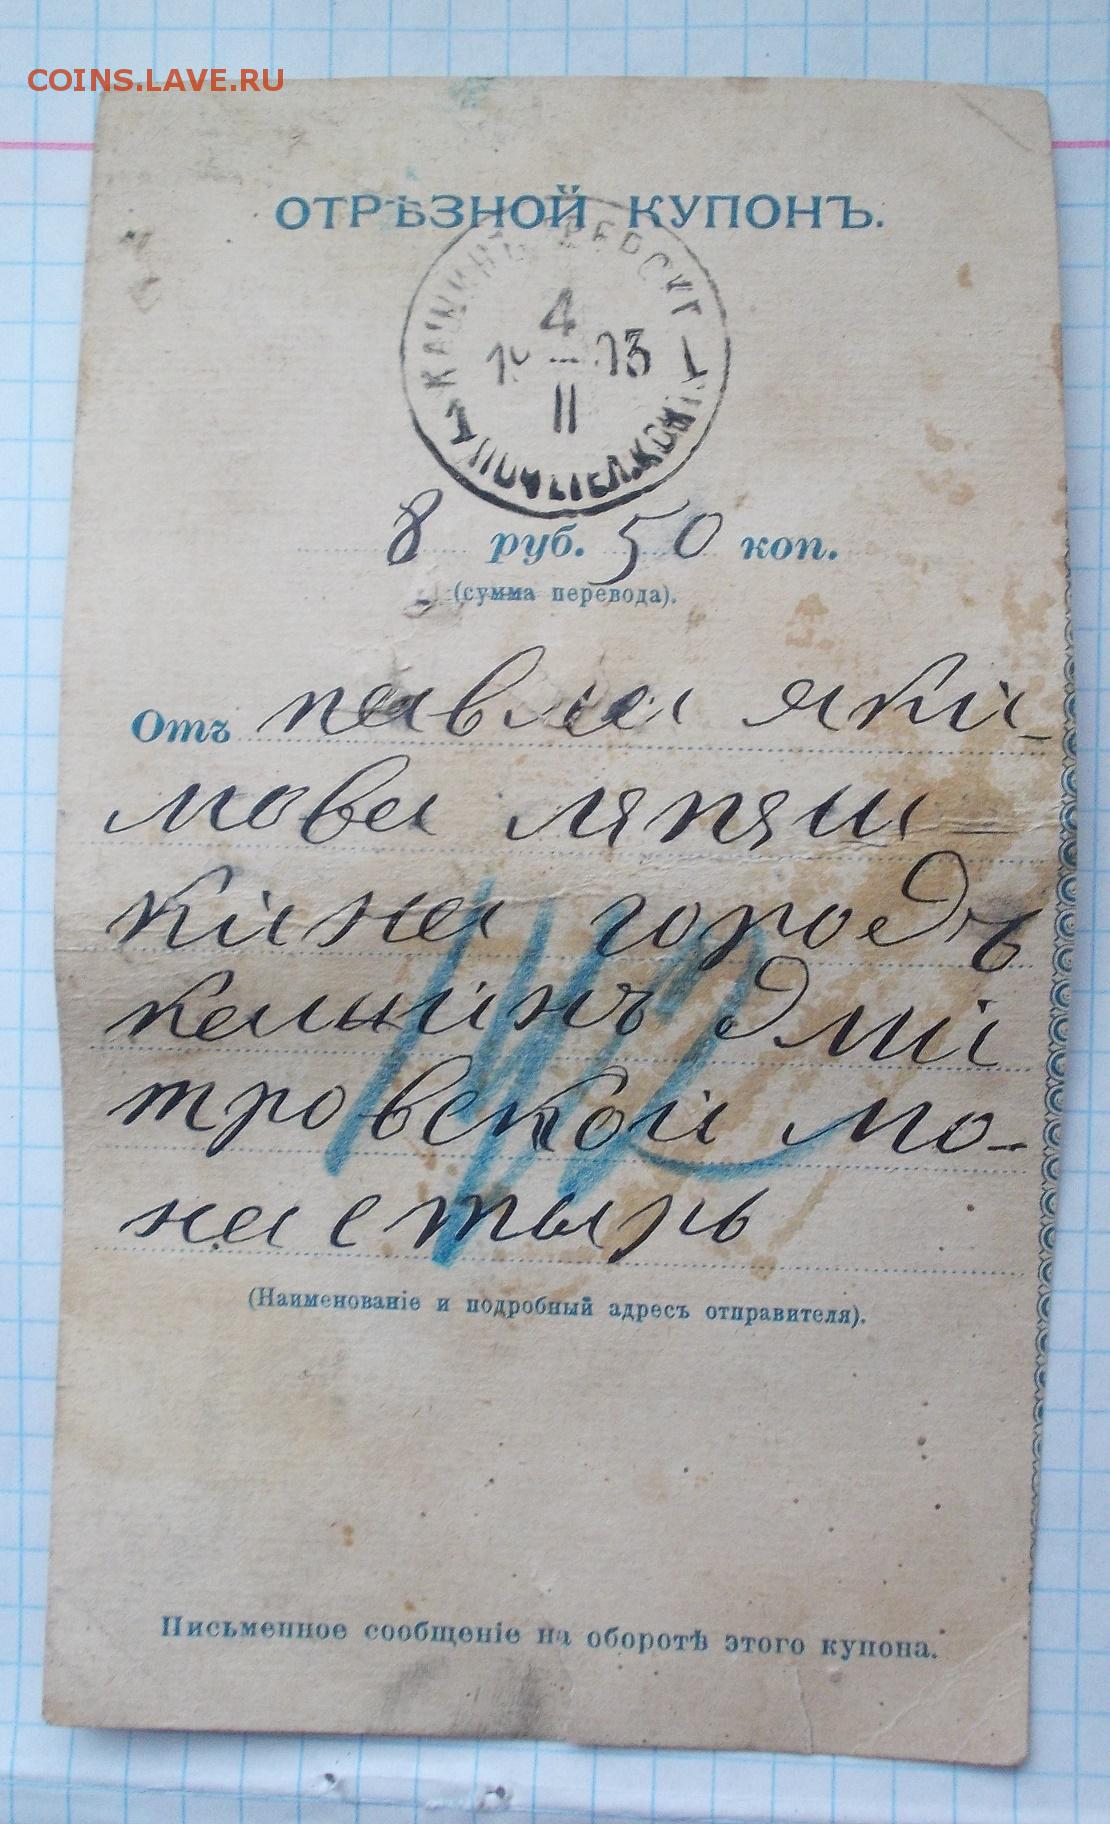 COINS.LAVE.RU
ОТРѢЗНОЙ КУПОНЪ.
КАШИНЪ
4
II
8 руб. 50 коп.
(сумма перевода).
Отъ павла яки-
мова ляпуш
кина городъ
кашинъ дми
тровской мо-
настырь
(Наименованіе и подробный адресъ отправителя).
Письменное сообщеніе на оборотѣ этого купона.